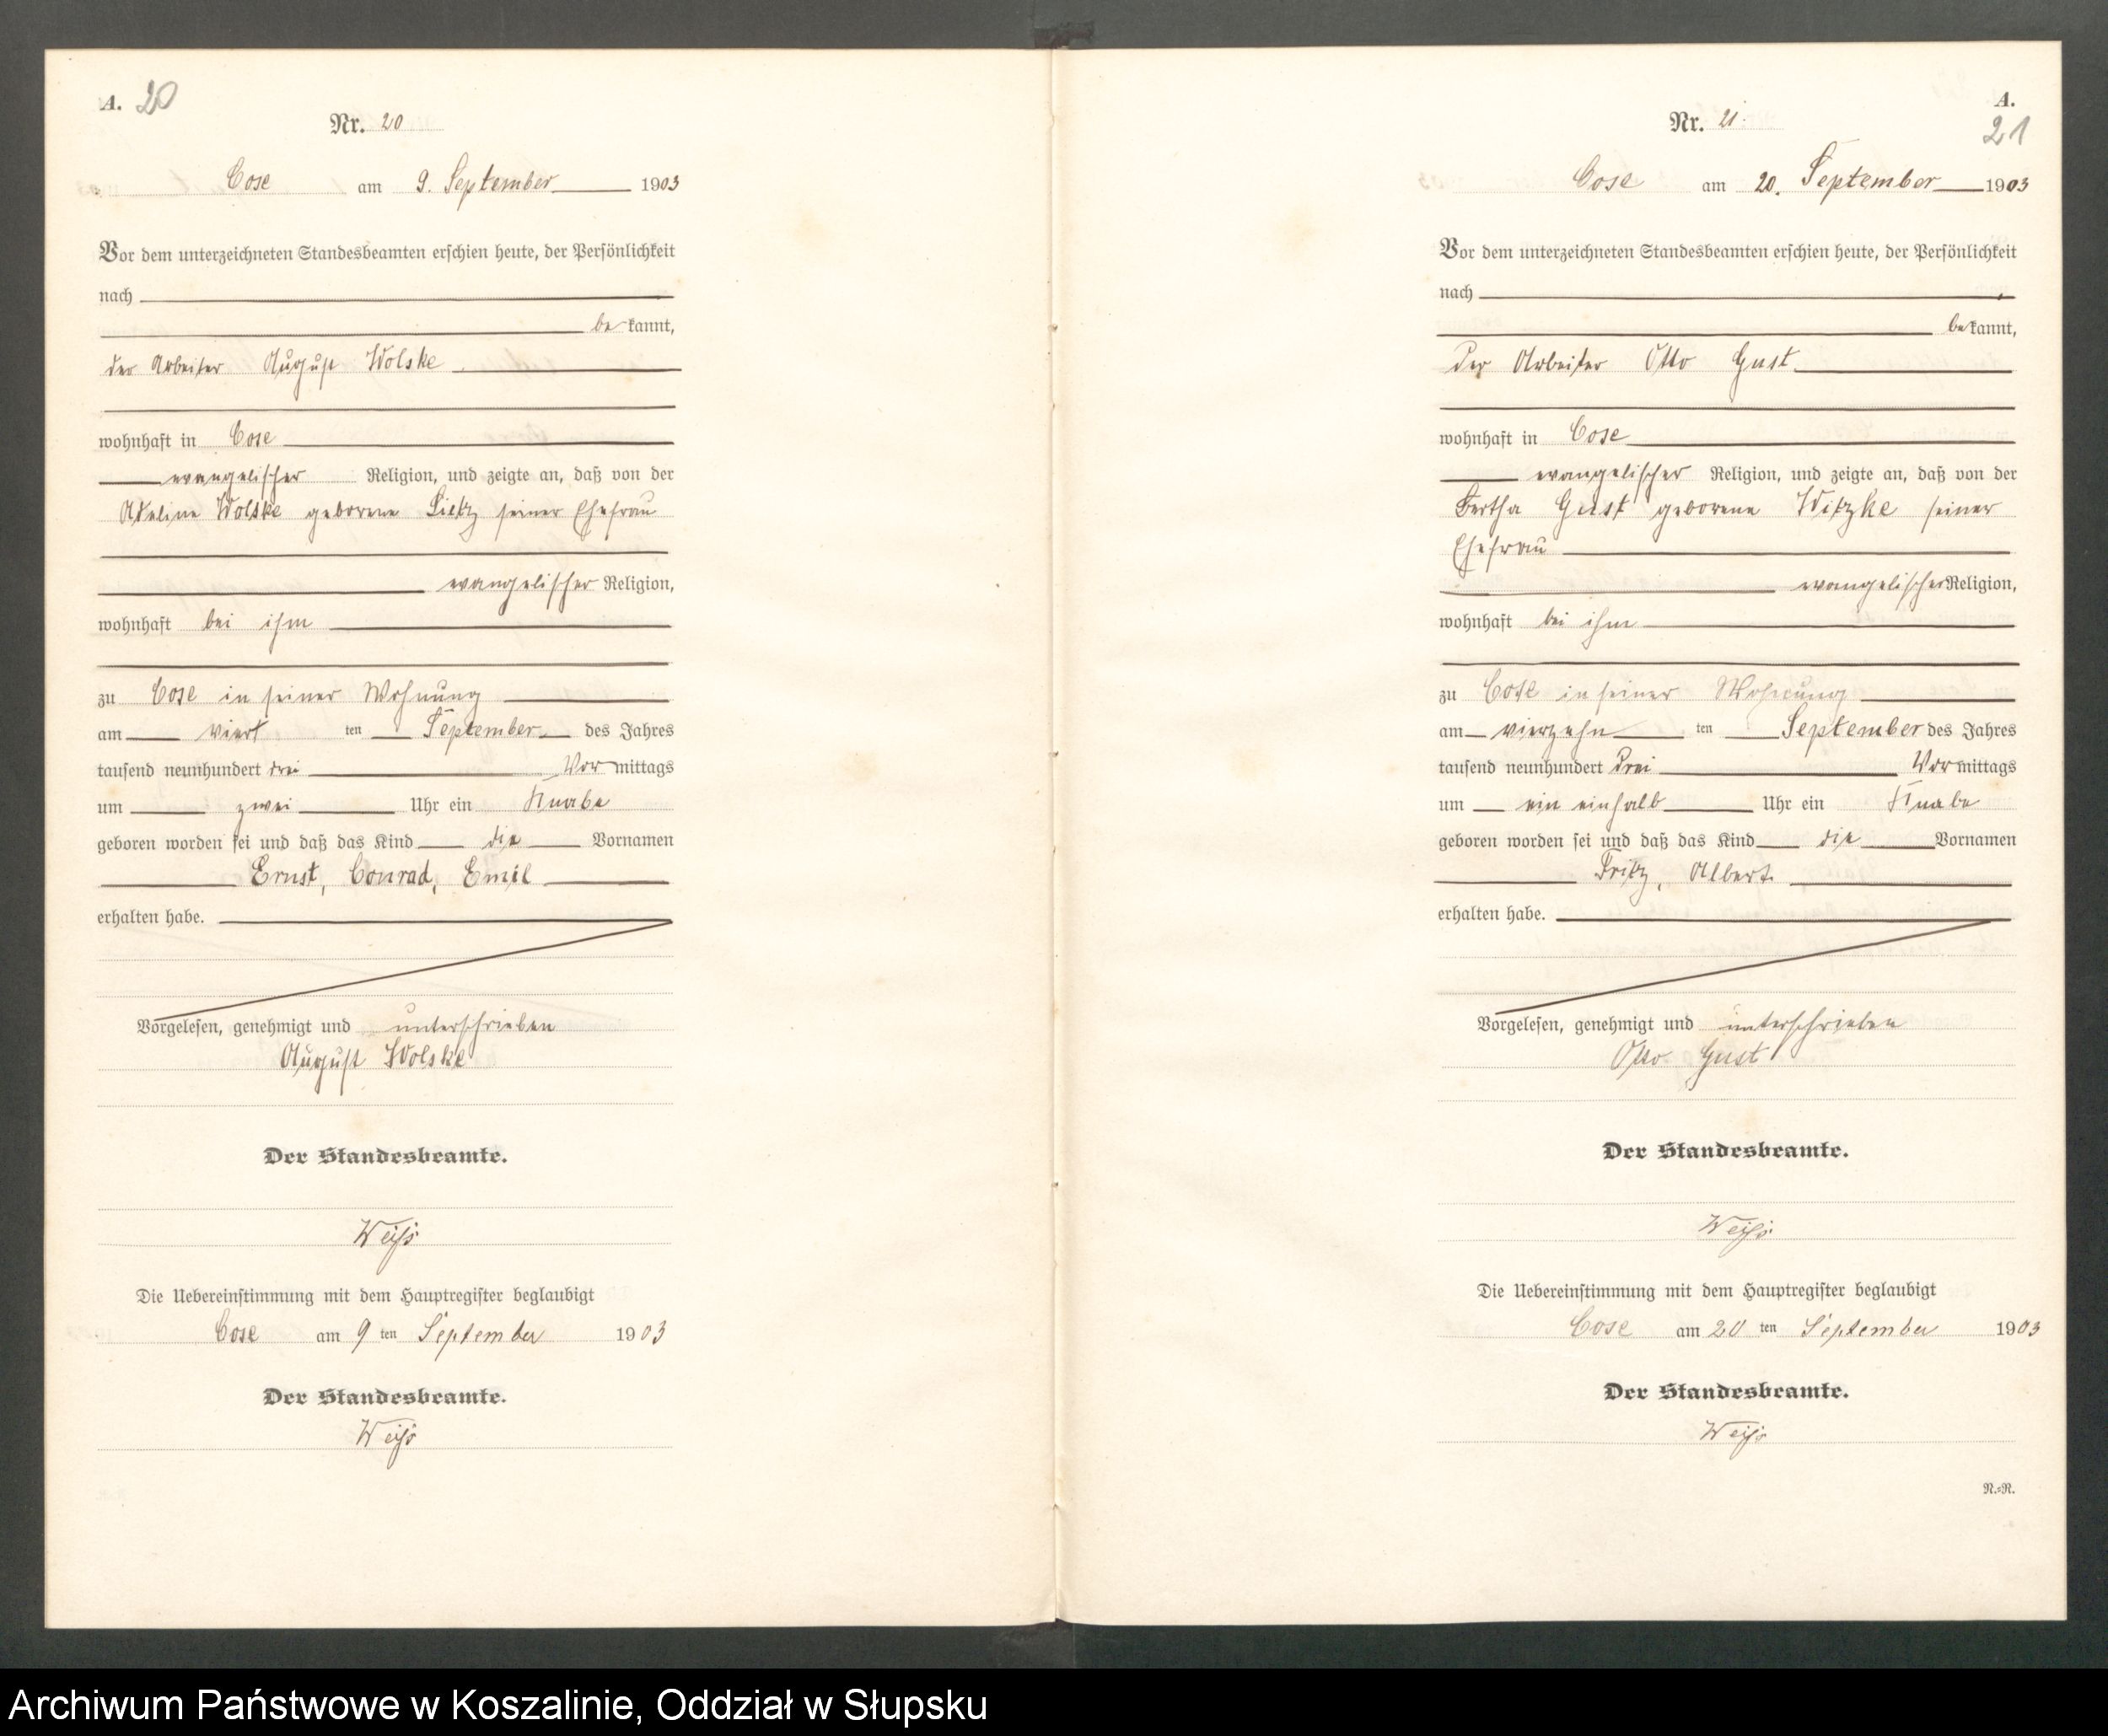 A. 20
Nr. 20
Cose am 9. September 1903
Vor dem unterzeichneten Standesbeamten erschien heute, der Persönlichkeit
nach
be kannt,
der Arbeiter August Wolske
wohnhaft in Cose
evangelischer Religion, und zeigte an, daß von der
Wolske geborene seiner Ehefrau
evangelischer Religion,
wohnhaft bei ihm
zu Cose in seiner Wohnung
am viert ten September des Jahres
tausend neunhundert drei Vor mittags
um zwei Uhr ein Knabe
geboren worden sei und daß das Kind die Vornamen
Ernst, Conrad, Emil
erhalten habe.
Vorgelesen, genehmigt und unterschrieben
August Wolske
Der Standesbeamte.
Weiß
Die Uebereinstimmung mit dem Hauptregister beglaubigt
Cose am 9 ten September 1903
Der Standesbeamte.
Weiß
A.
21
Nr. 21.
Cose am 20. September 1903
Vor dem unterzeichneten Standesbeamten erschien heute, der Persönlichkeit
nach
be kannt,
der Arbeiter Otto Gust
wohnhaft in Cose
evangelischer Religion, und zeigte an, daß von der
Bertha Gust geborene Witzke seiner
Ehefrau
evangelischer Religion,
wohnhaft bei ihm
zu Cose in seiner Wohnung
am vierzehn ten September des Jahres
tausend neunhundert drei Vor mittags
um ein einhalb Uhr ein Knabe
geboren worden sei und daß das Kind die Vornamen
Fritz, Albert
erhalten habe.
Vorgelesen, genehmigt und unterschrieben
Otto Gust
Der Standesbeamte.
Weiß
Die Uebereinstimmung mit dem Hauptregister beglaubigt
Cose am 20 ten September 1903
Der Standesbeamte.
Weiß
R.=R.
Archiwum Państwowe w Koszalinie, Oddział w Słupsku